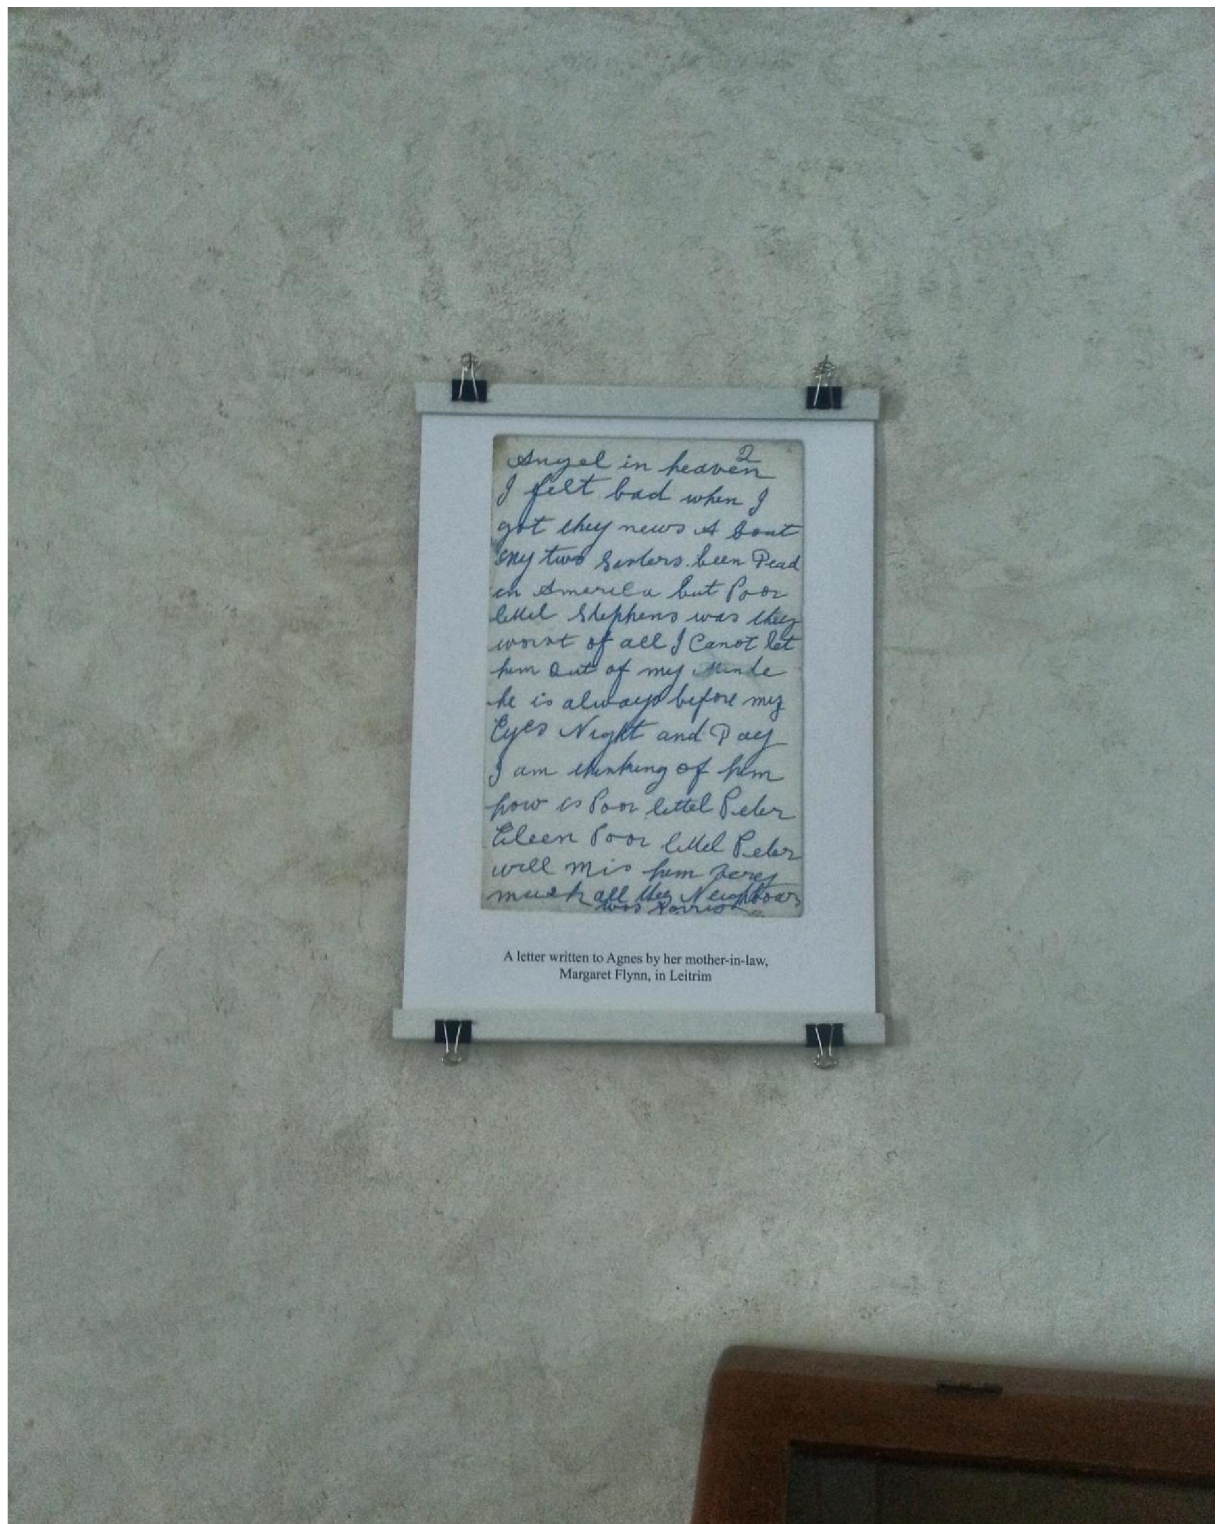 2
Angel in heaven
I felt bad when I
got they news A bout
my two Sisters been Dead
in America but Poor
littel Stephens was they
worst of all I Canot let
him out of my Minde
he is always before my
Eyes Night and Day
I am thinking of him
how is Poor littel Peter
Eileen Poor littel Peter
will mis him very
much all they Neighbours
was
A letter written to Agnes by her mother-in-law,
Margaret Flynn, in Leitrim